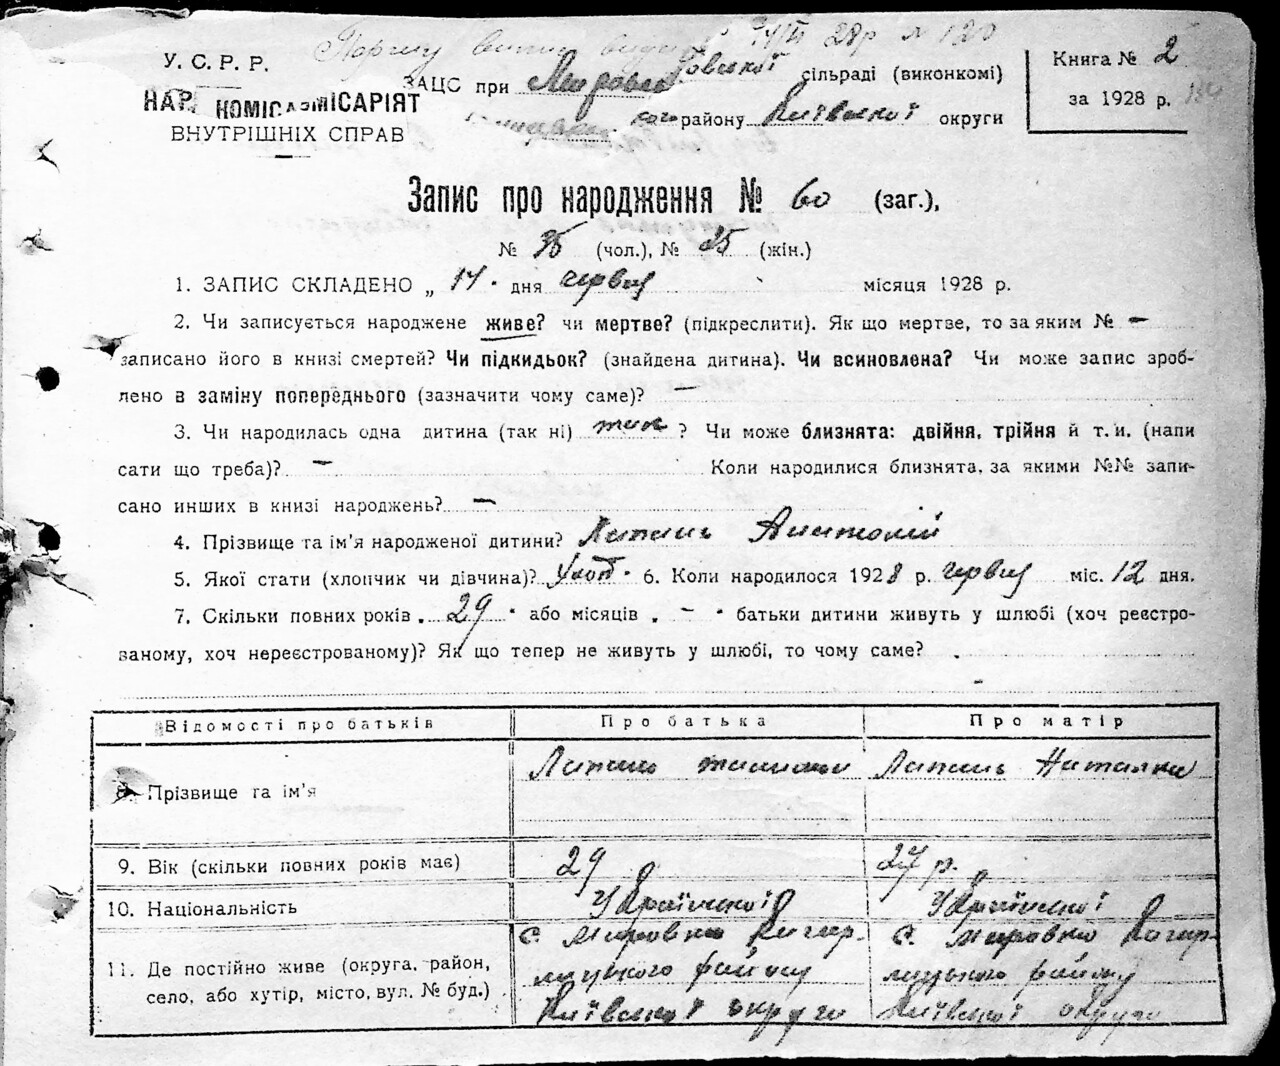 У. С. Р. Р.
НАР. КОМІСАРІЯТ
ВНУТРІШНІХ СПРАВ
28 р № 120
ЗАЦС при Мировській сільраді (виконкомі)
району Київської округи
Книга № 2
за 1928 р.
Запис про народження № 60 (заг.),
№ 35 (чол.), № 25 (жін.)
1. ЗАПИС СКЛАДЕНО „ 14 · дня червня місяця 1928 р.
2. Чи записується народжене живе? чи мертве? (підкреслити). Як що мертве, то за яким № —
записано його в книзі смертей? Чи підкидьок? (знайдена дитина). Чи всиновлена? Чи може запис зроб-
лено в заміну попереднього (зазначити чому саме)? —
3. Чи народилась одна дитина (так ні) так ? Чи може близнята: двійня, трійня й т. и. (напи
сати що треба)? — Коли народилися близнята, за якими №№ запи-
сано инших в книзі народжень? —
4. Прізвище та ім'я народженої дитини? Лапань Анатолій
5. Якої стати (хлопчик чи дівчина)? Хлоп · 6. Коли народилося 1928 р. червня міс. 12 дня.
7. Скільки повних років . 29 · або місяців . — · батьки дитини живуть у шлюбі (хоч реєстро-
ваному, хоч нереєстрованому)? Як що тепер не живуть у шлюбі, то чому саме? .
—
Відомості про батьків Про батька Про матір
8. Прізвище та ім'я Лапань Лапань Наталка
9. Вік (скільки повних років має) 29 27 р.
10. Національність Української Української
11. Де постійно живе (округа, район, с. Мировка Кагар- с. Мировка Кагар-
село, або хутір, місто, вул. № буд.) лицького району лицького району
Київської округи Київської округи